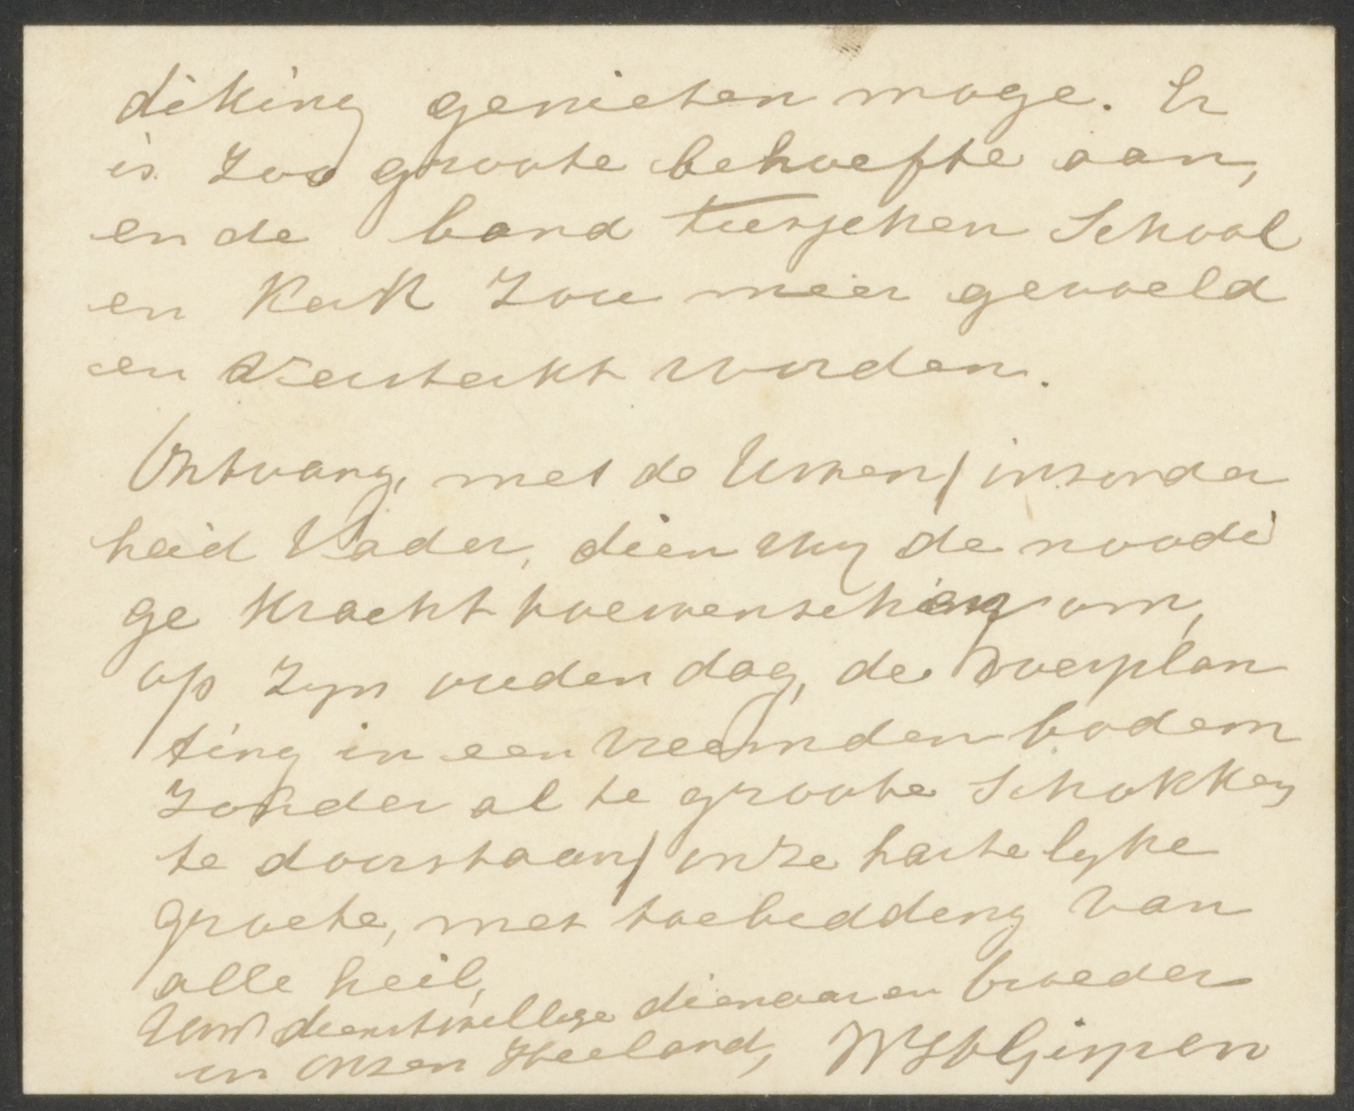 diking genieten moge. Er
is zoo groote behoefte aan,
en de band tusschen School
en Kerk zou meer gevoeld
en versterkt worden.
Ontvang, met de Uwen / inzonder
heid Vader, dien wy de noodi
ge kracht toewenschen om,
op zyn ouden dag, de overplan
ting in een vreemden bodem
zonder al te groote schokken
te doorstaan / onze hartelyke
groete, met toebidding van
alle heil,
Uw dienstwillige dienaar en broeder
in onzen Heeland,